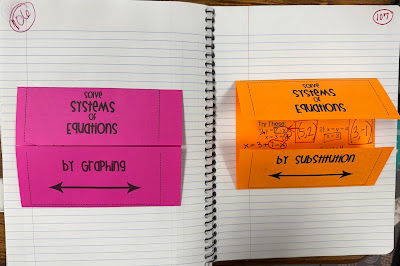 106
Solve
Systems
of
Equations
by Graphing
107
Solve
Systems
of
Equations
Try These:
5,2
3,-1
by Substitution